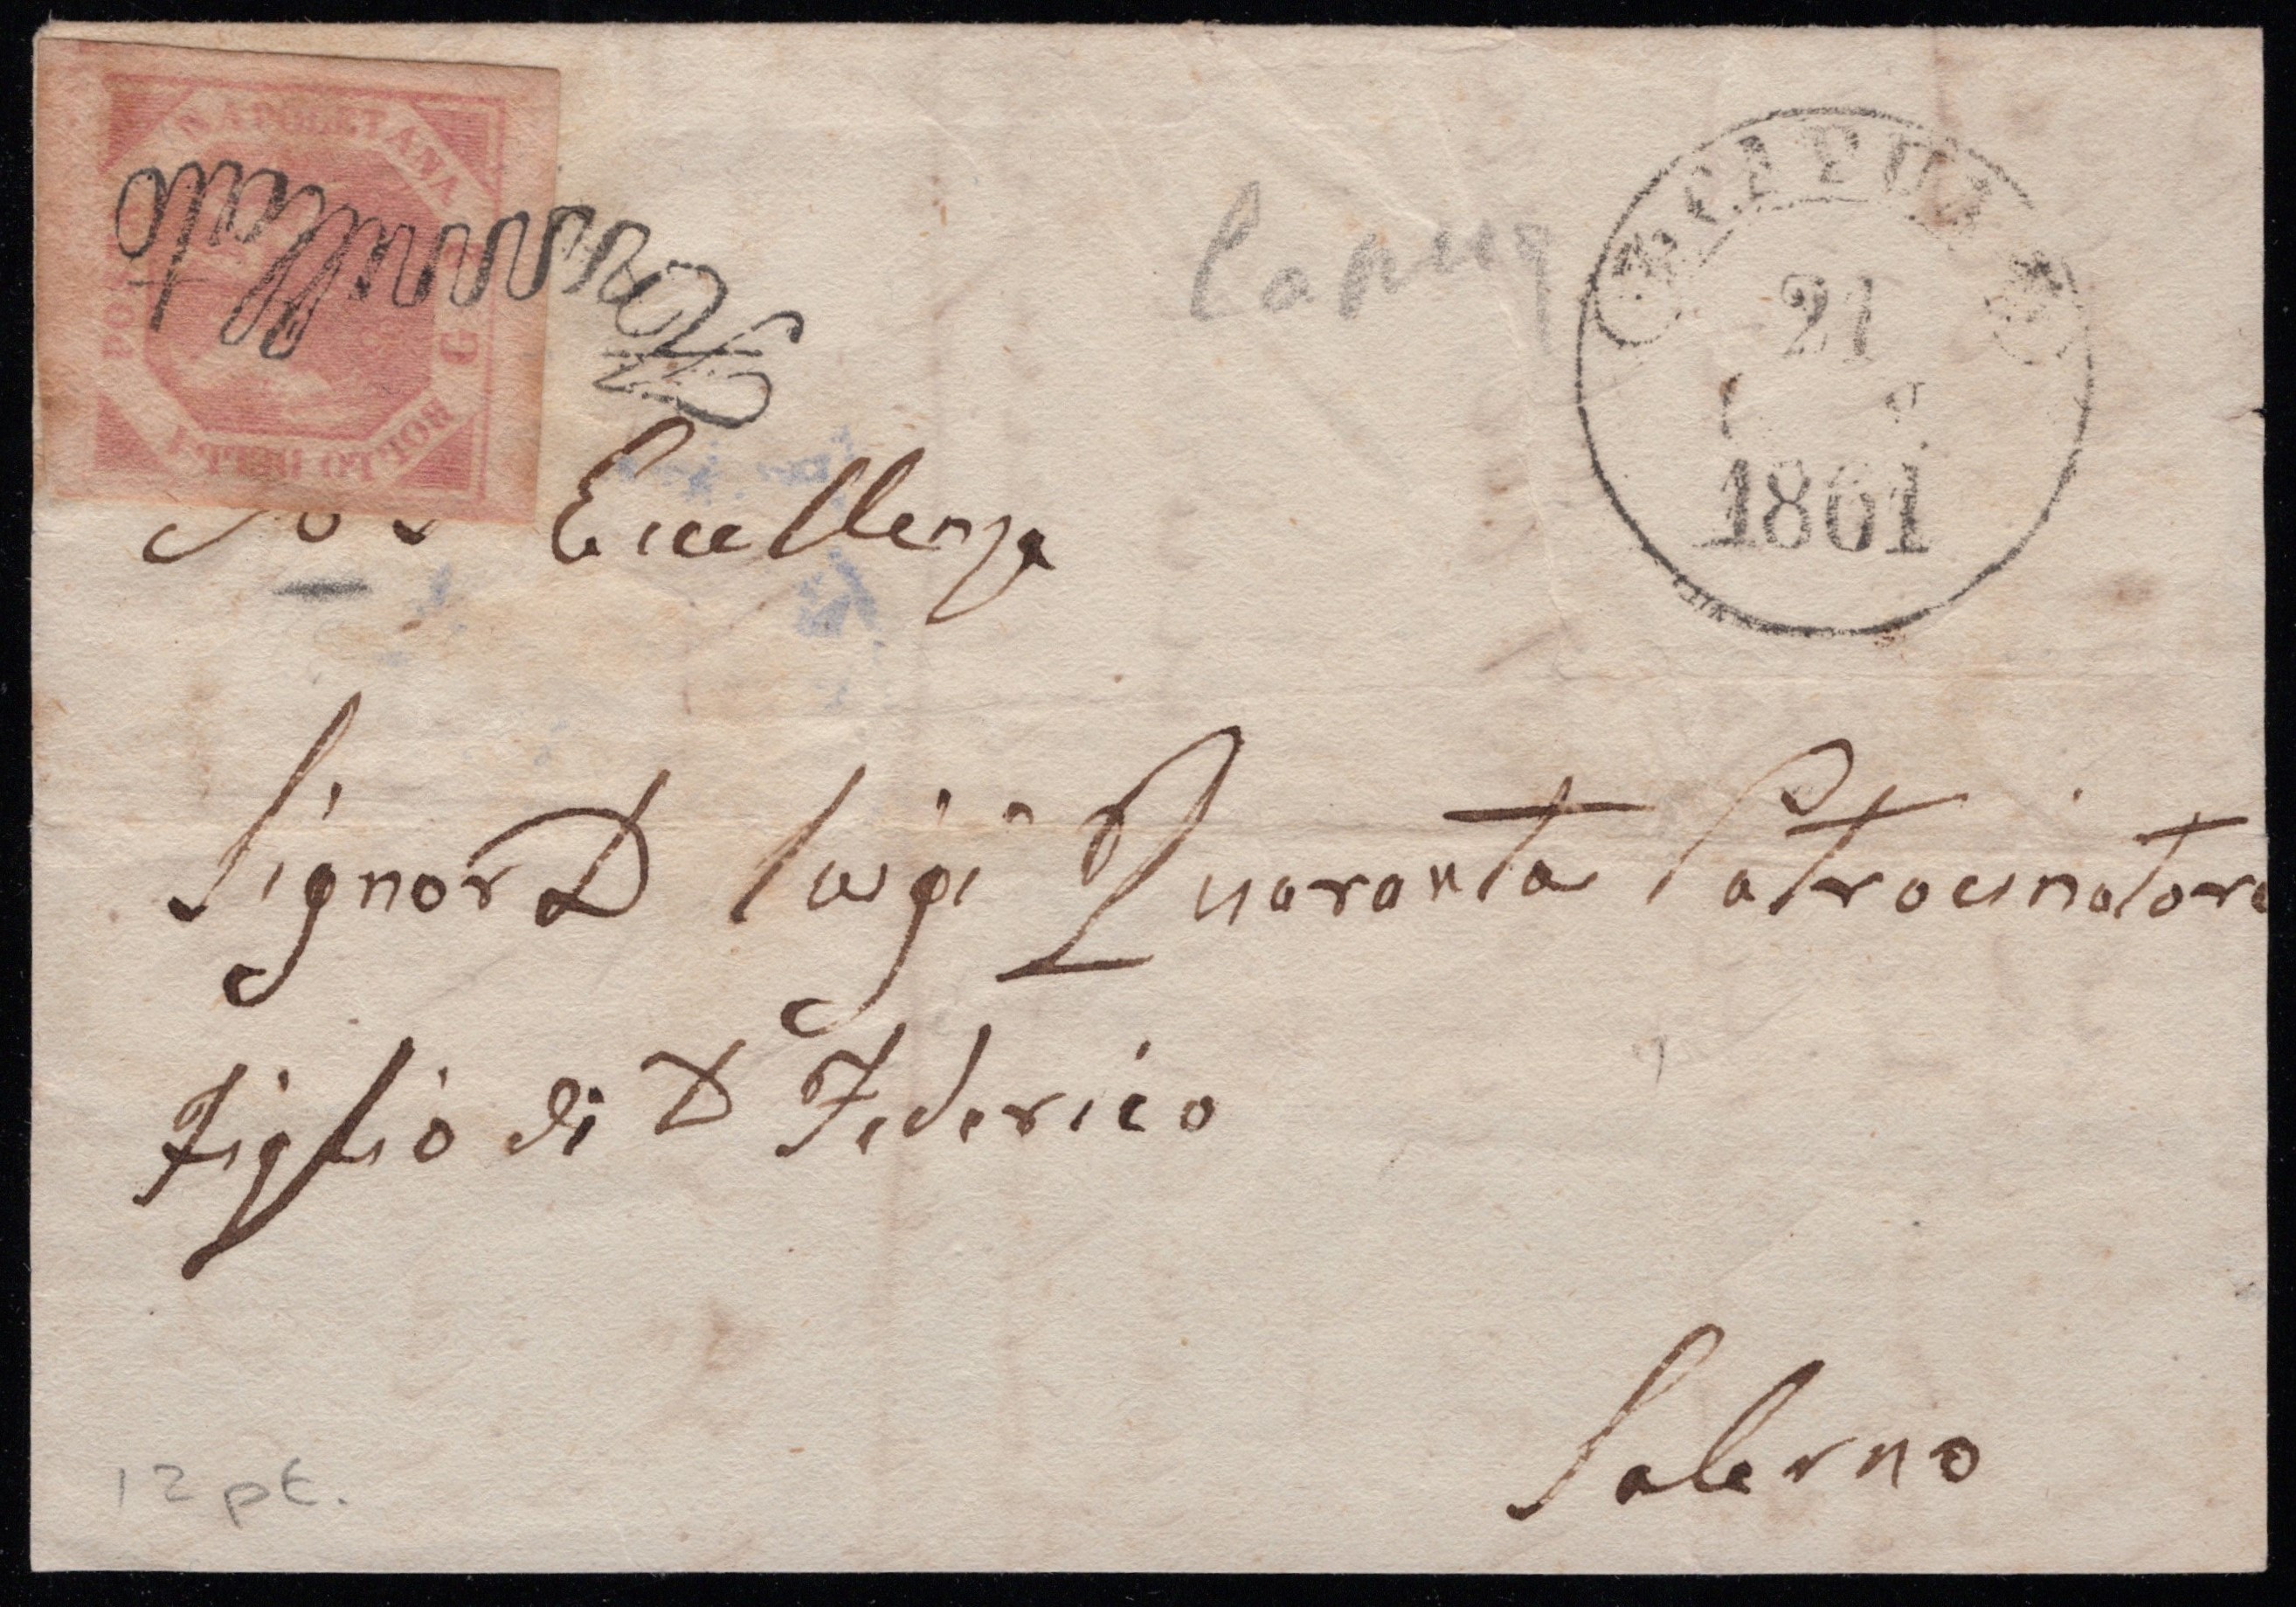 BOLLO DELLA POSTA NAPOLETANA
G
Annullato
Capua
CAPUA
21
1861
Eccellenza
Signor D Luigi Quaranta Patrocinatore
Figlio di D Federico
Salerno
12 pt.